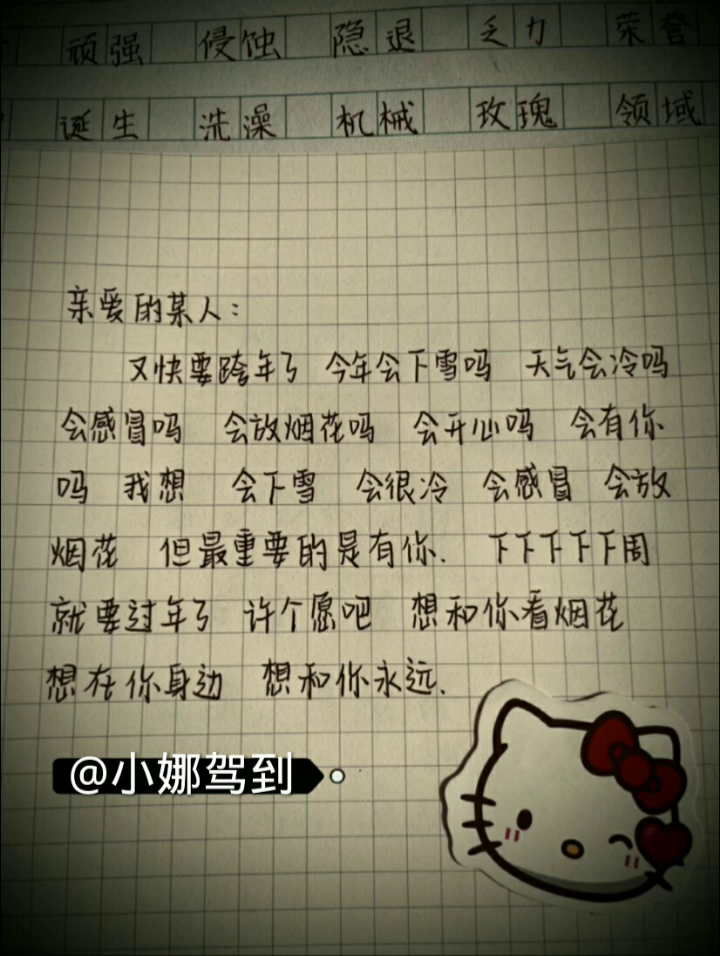 顽强 侵蚀 隐退 乏力 荣誉
诞生 洗澡 机械 玫瑰 领域
亲爱的某人：
又快要跨年了 今年会下雪吗 天气会冷吗
会感冒吗 会放烟花吗 会开心吗 会有你
吗 我想 会下雪 会很冷 会感冒 会放
烟花 但最重要的是有你. 下下下下下周
就要过年了 许个愿吧 想和你看烟花
想在你身边 想和你永远.
@小娜驾到